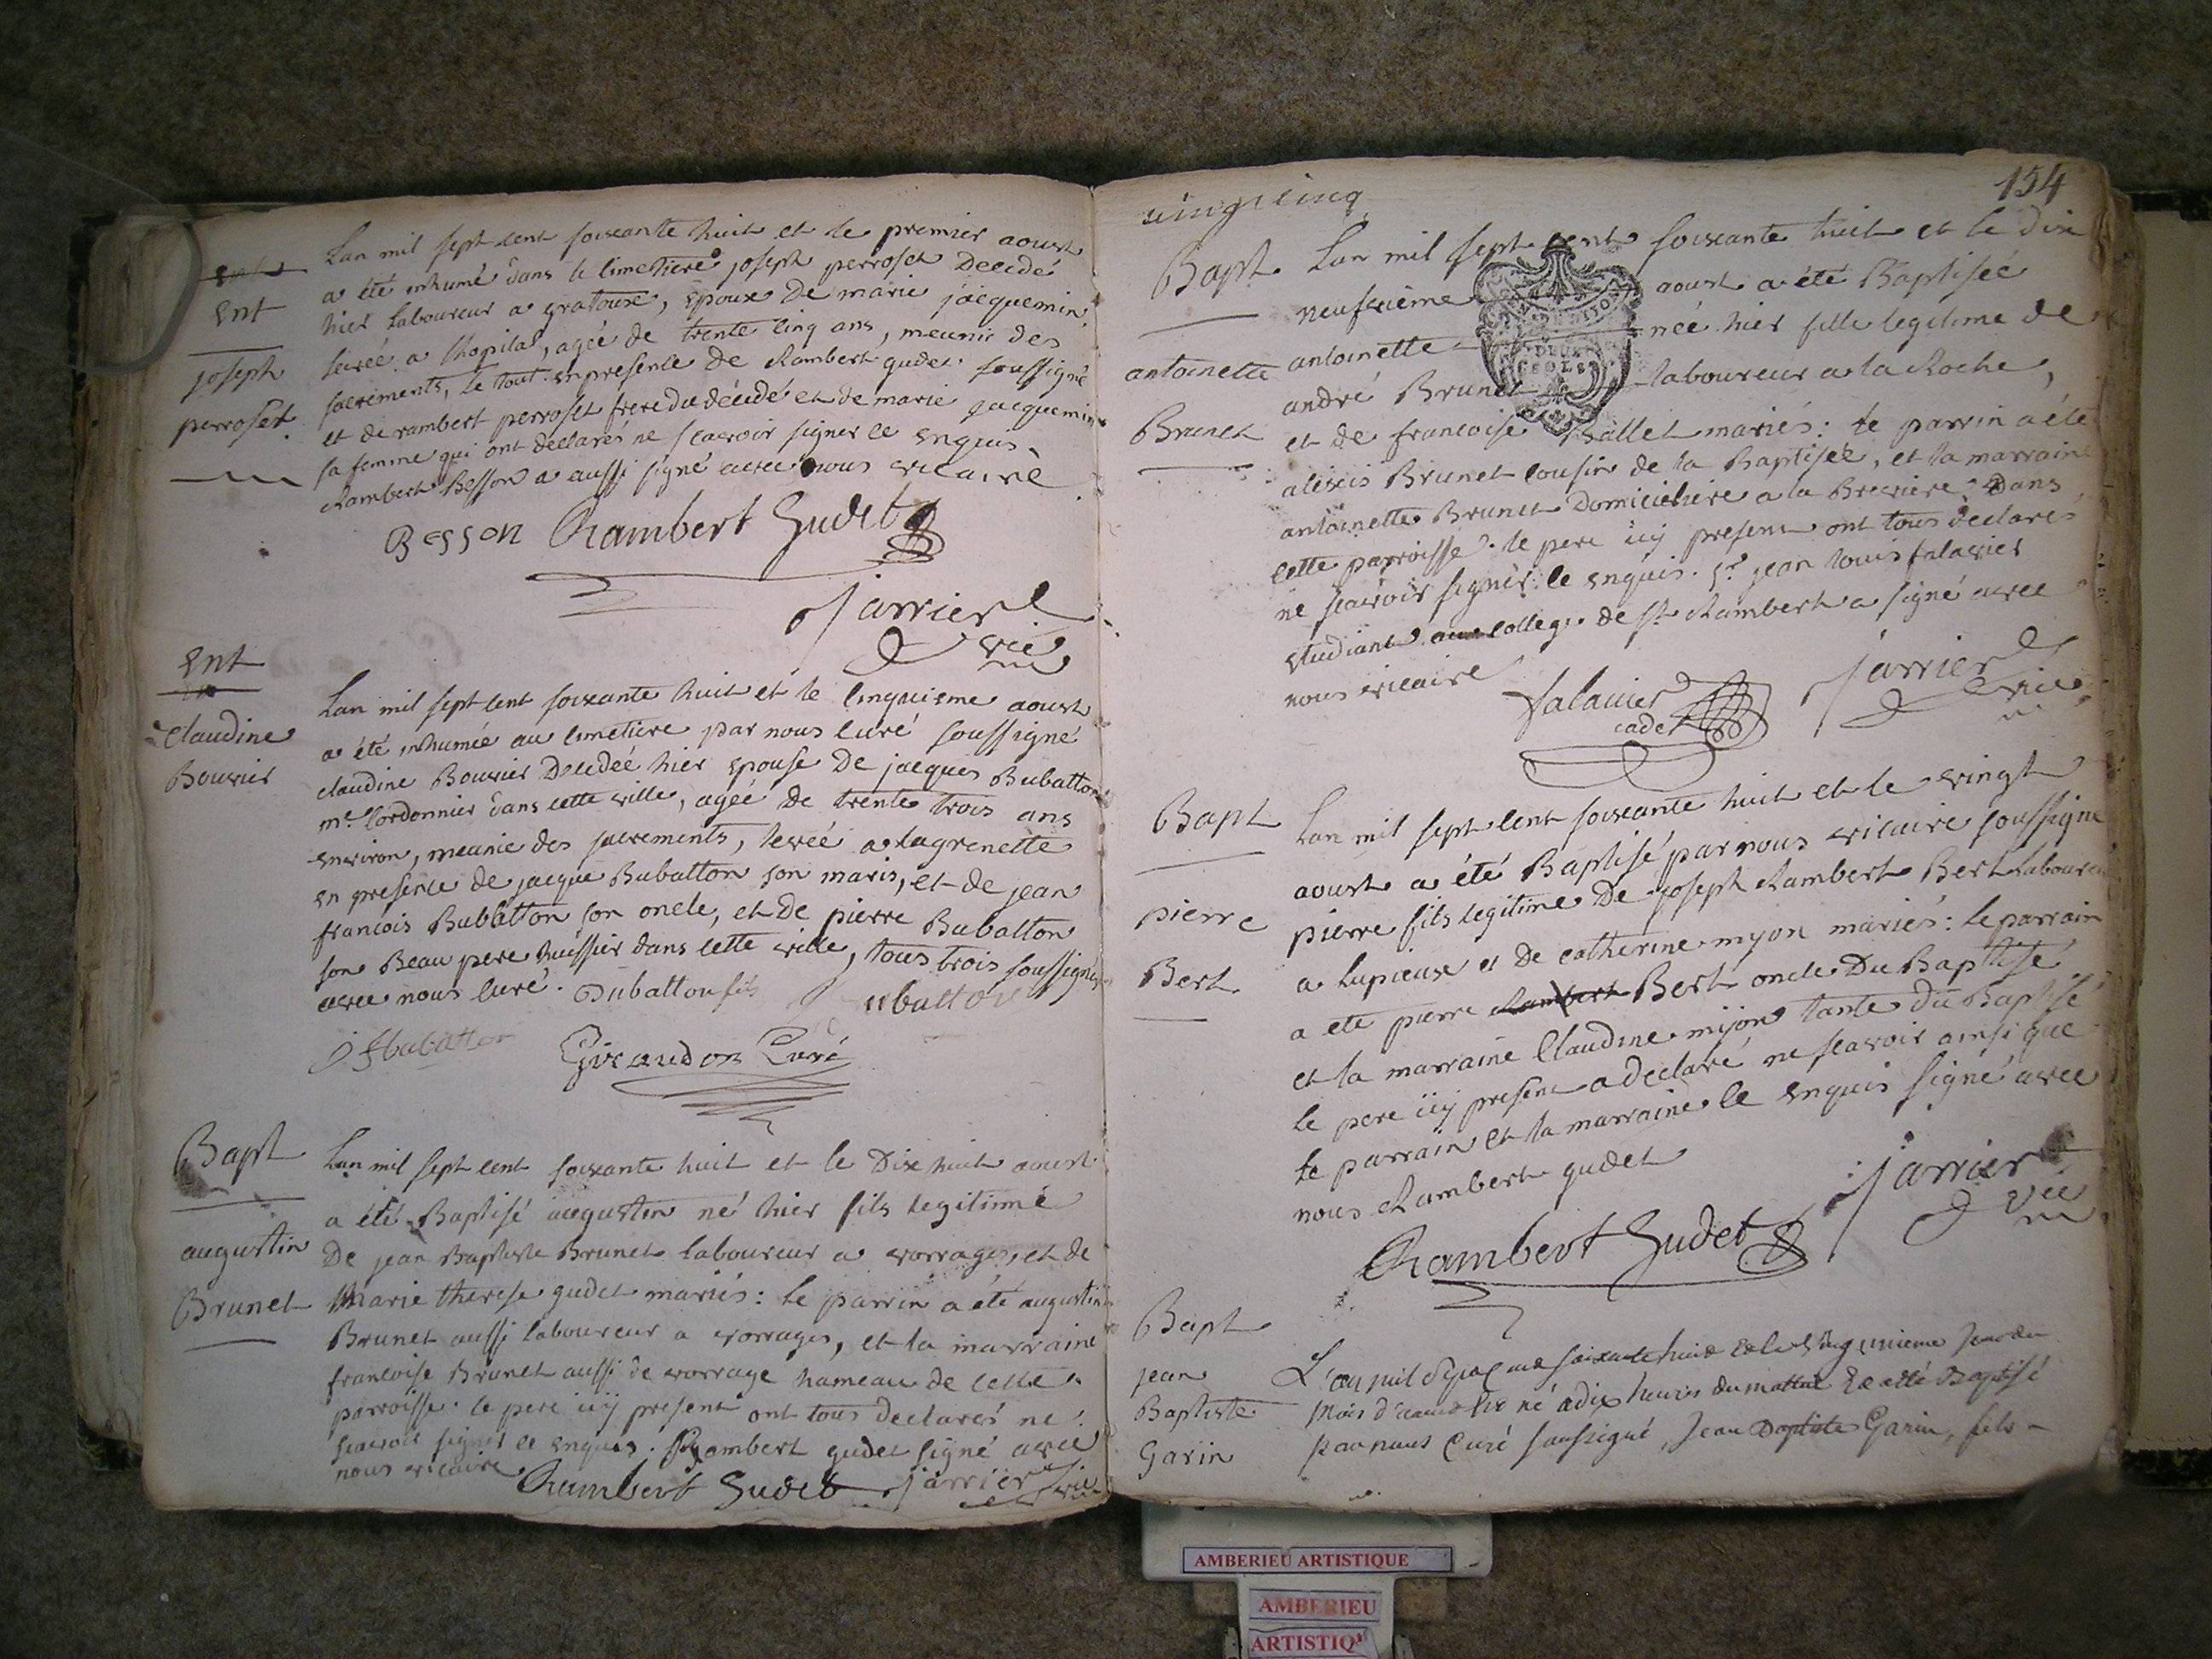 Ent
Joseph
perroset
Lan mil sept cent soixante huit et le premier aoust
a été inhumé dans le cimetiere joseph perroset Decedé
hier Laboureur a gratoux, Epoux De marie jacquemin
levée a lhopital, agée de trente cinq ans, meunie des
sacrements, le tout en presence de Rambert gudet soussigné
et de rambert perroset frere du décédé et de marie jacquemin
sa femme qui ont declarés ne scavoir signer ce enquis.
Rambert Besson a aussi signé avec nous vicaire
Besson Rambert Gudet
jarrier
vic
Ent
Claudine
Bouvier
Lan mil sept cent soixante huit et le cinquieme aoust
a été inhumée au cimetiere par nous curé soussigné
claudine Bouvier Decedée hier epouse De jacques Bubatton
me Cordonnier dans cette ville, agée De trente trois ans
environ, meunie des sacrements, levée a lagrenette
en presence de jacque Bubatton son maris, et de jean
francois Bubatton son oncle, et de pierre Bubatton
son Beau pere huissier dans cette ville, tous trois soussignés
avec nous curé. Bubatton fils Bubatton
Bubatton Giraudon Curé
Bapt
augustin
Brunet
Lan mil sept cent soixante huit et le Dix huit aoust
a été Baptisé augustin né hier fils legitime
De jean Baptiste Brunet laboureur a vorrages, et de
Marie therese gudet mariés: le parrin a été augustin
Brunet aussi laboureur a vorrages, et la marraine
francoise Brunet aussi de vorrage hameau de cette
parroisse. le pere icy present ont tous declarés ne
scavoir signer ce enquis. Rambert gudet signé avec
nous vicaire
Rambert Gudet jarrier vic
vingt cinq
154
Bapt
antoinette
Brunet
Lan mil sept cent soixante huit et le dix
neufvieme aoust a été Baptisée
antoinette née hier fille legitime de
andré Brunet laboureur a la Roche,
et de francoise mariés: le parrin a été
alexis Brunet cousin de la Baptisée, et la marraine
antoinette Brunet Domiciliere a la Breviere Dans
cette parroisse. le pere icy present ont tous declares
ne scavoir signer ce enquis. Sr jean louis falavier
etudiant au college de St Rambert a signé avec
nous vicaire
falavier
cadet
jarrier
vic
Bapt
pierre
Bert
Lan mil sept cent soixante huit et le vingt
aoust a été Baptisé par nous vicaire soussigné
pierre fils legitime De joseph Rambert Bert laboureur
a lupieux et De catherine myon mariés: le parrain
a ete pierre Rambert Bert oncle Du Baptisé
et la marraine Claudine mijon tante du Baptisé
le pere icy present a declaré ne scavoir ainsi que
le parrain et la marraine ce enquis signé avec
nous Rambert gudet
Rambert Gudet
jarrier
vic
Bapt
jean
Baptiste
Garin
L'an mil sept cent soixante huit et le vingt unieme jour du
mois d'aoust est né à dix heures du matin et a été Baptisé
par nous Curé soussigné, Jean Baptiste Garin, fils
AMBERIEU ARTISTIQUE
AMBERIEU
ARTISTIQ